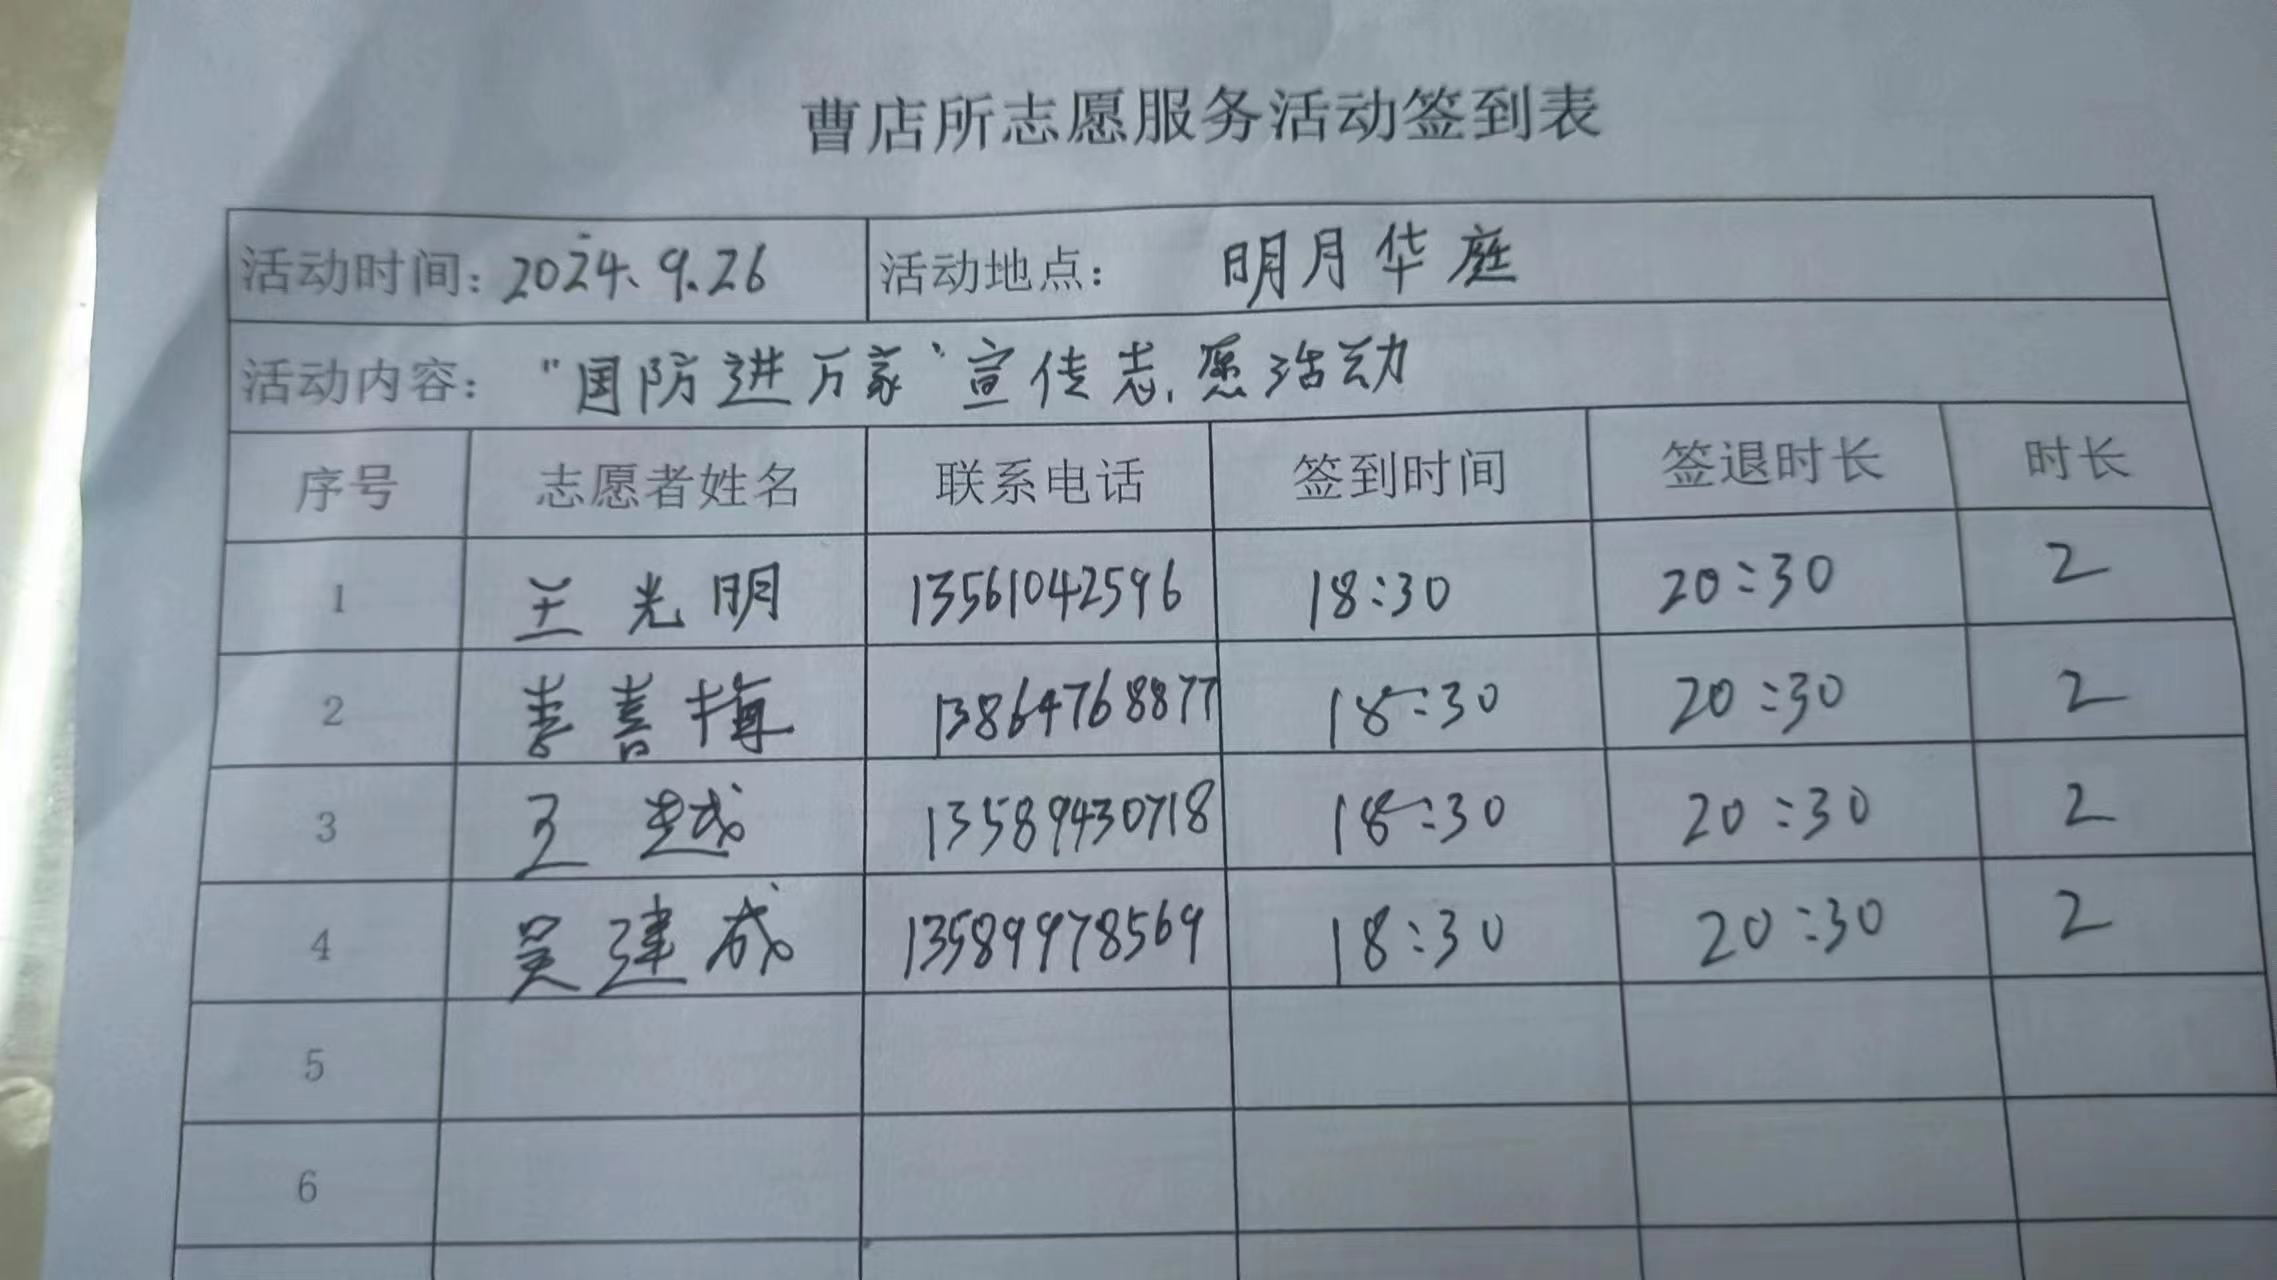 曹店所志愿服务活动签到表
活动时间：2024.9.26 活动地点：明月华庭
活动内容：“国防进万家”宣传志愿活动
序号 志愿者姓名 联系电话 签到时间 签退时长 时长
1 王光明 13561042596 18:30 20:30 2
2 李善梅 13864768877 18:30 20:30 2
3 王越 13589430718 18:30 20:30 2
4 吴建成 13589978569 18:30 20:30 2
5
6